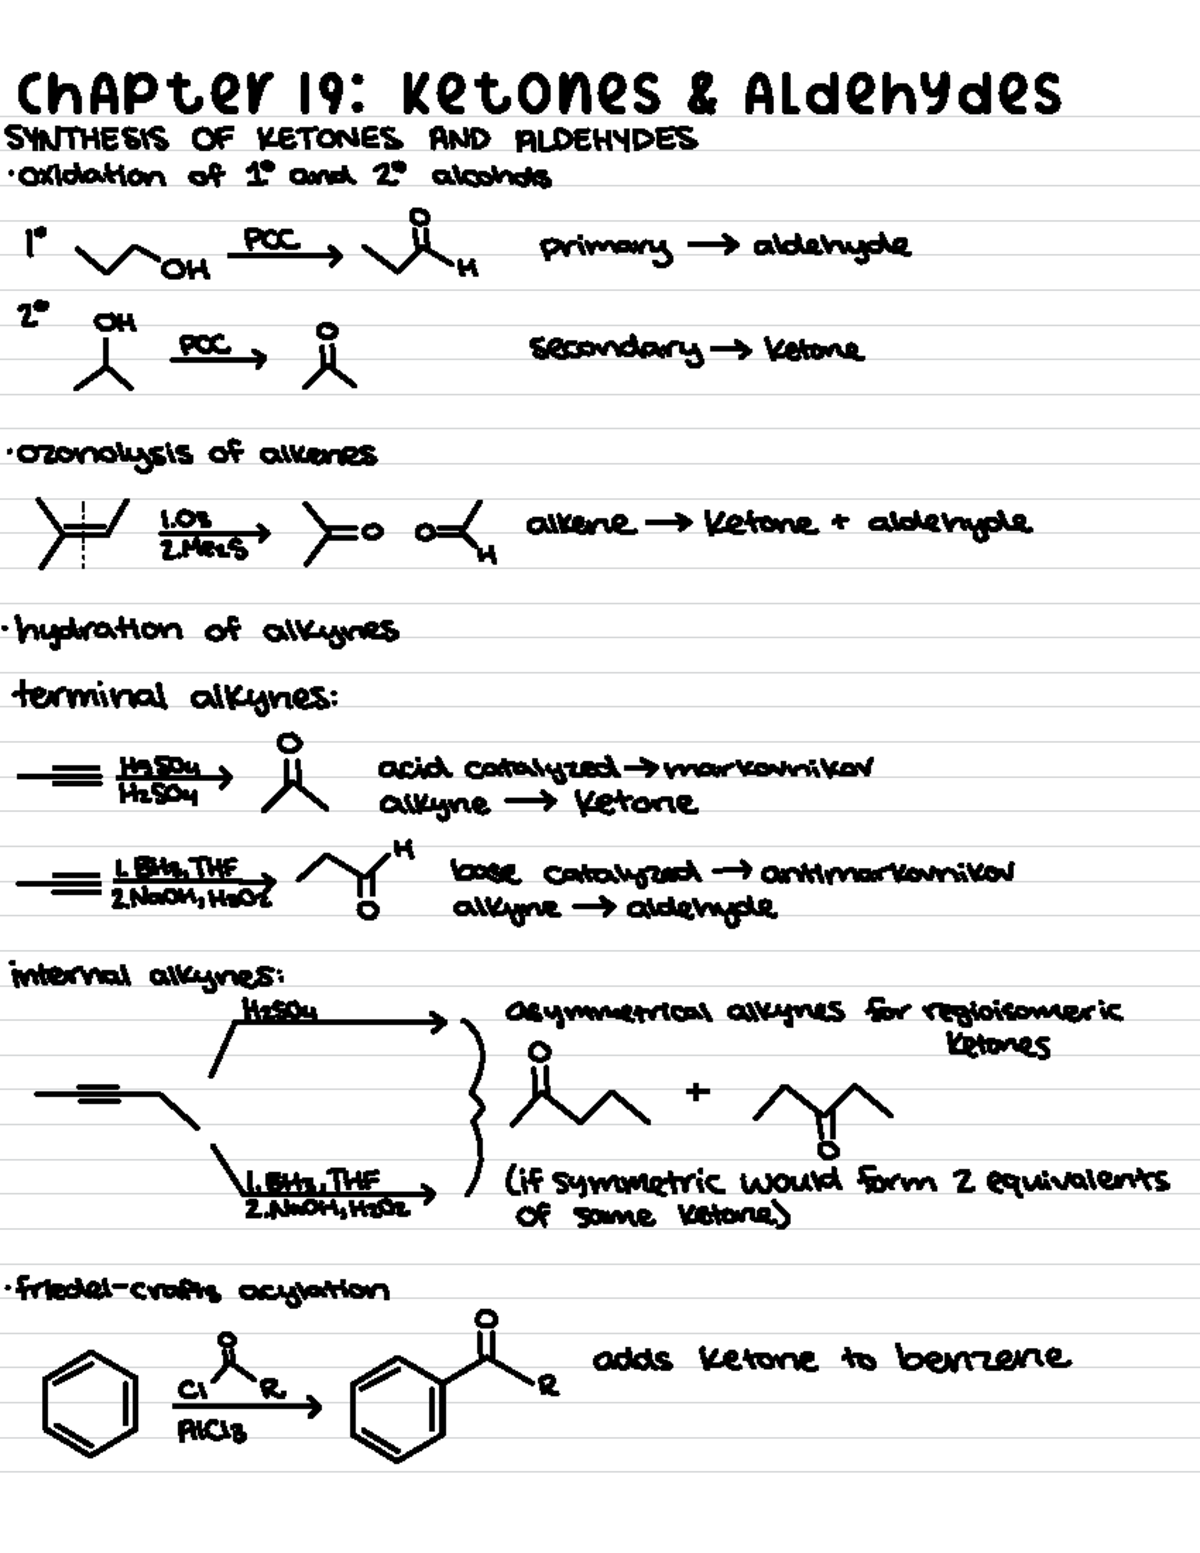 Chapter 19: Ketones & Aldehydes
SYNTHESIS OF KETONES AND ALDEHYDES
•oxidation of 1° and 2° alcohols
1° OH PCC O H primary → aldehyde
2° OH PCC O secondary → ketone
•ozonolysis of alkenes
1.O3 2.Me2S O O H alkene → ketone + aldehyde
•hydration of alkynes
terminal alkynes:
HgSO4 H2SO4 O acid catalyzed → markovnikov
alkyne → ketone
1. BH3, THF 2.NaOH, H2O2 H O base catalyzed → antimarkovnikov
alkyne → aldehyde
internal alkynes:
H2SO4 asymmetrical alkynes for regioisomeric
ketones
O + O
1. BH3, THF 2.NaOH, H2O2 (if symmetric would form 2 equivalents
of same ketone)
•friedel-crafts acylation
O Cl R AlCl3 O R adds ketone to benzene